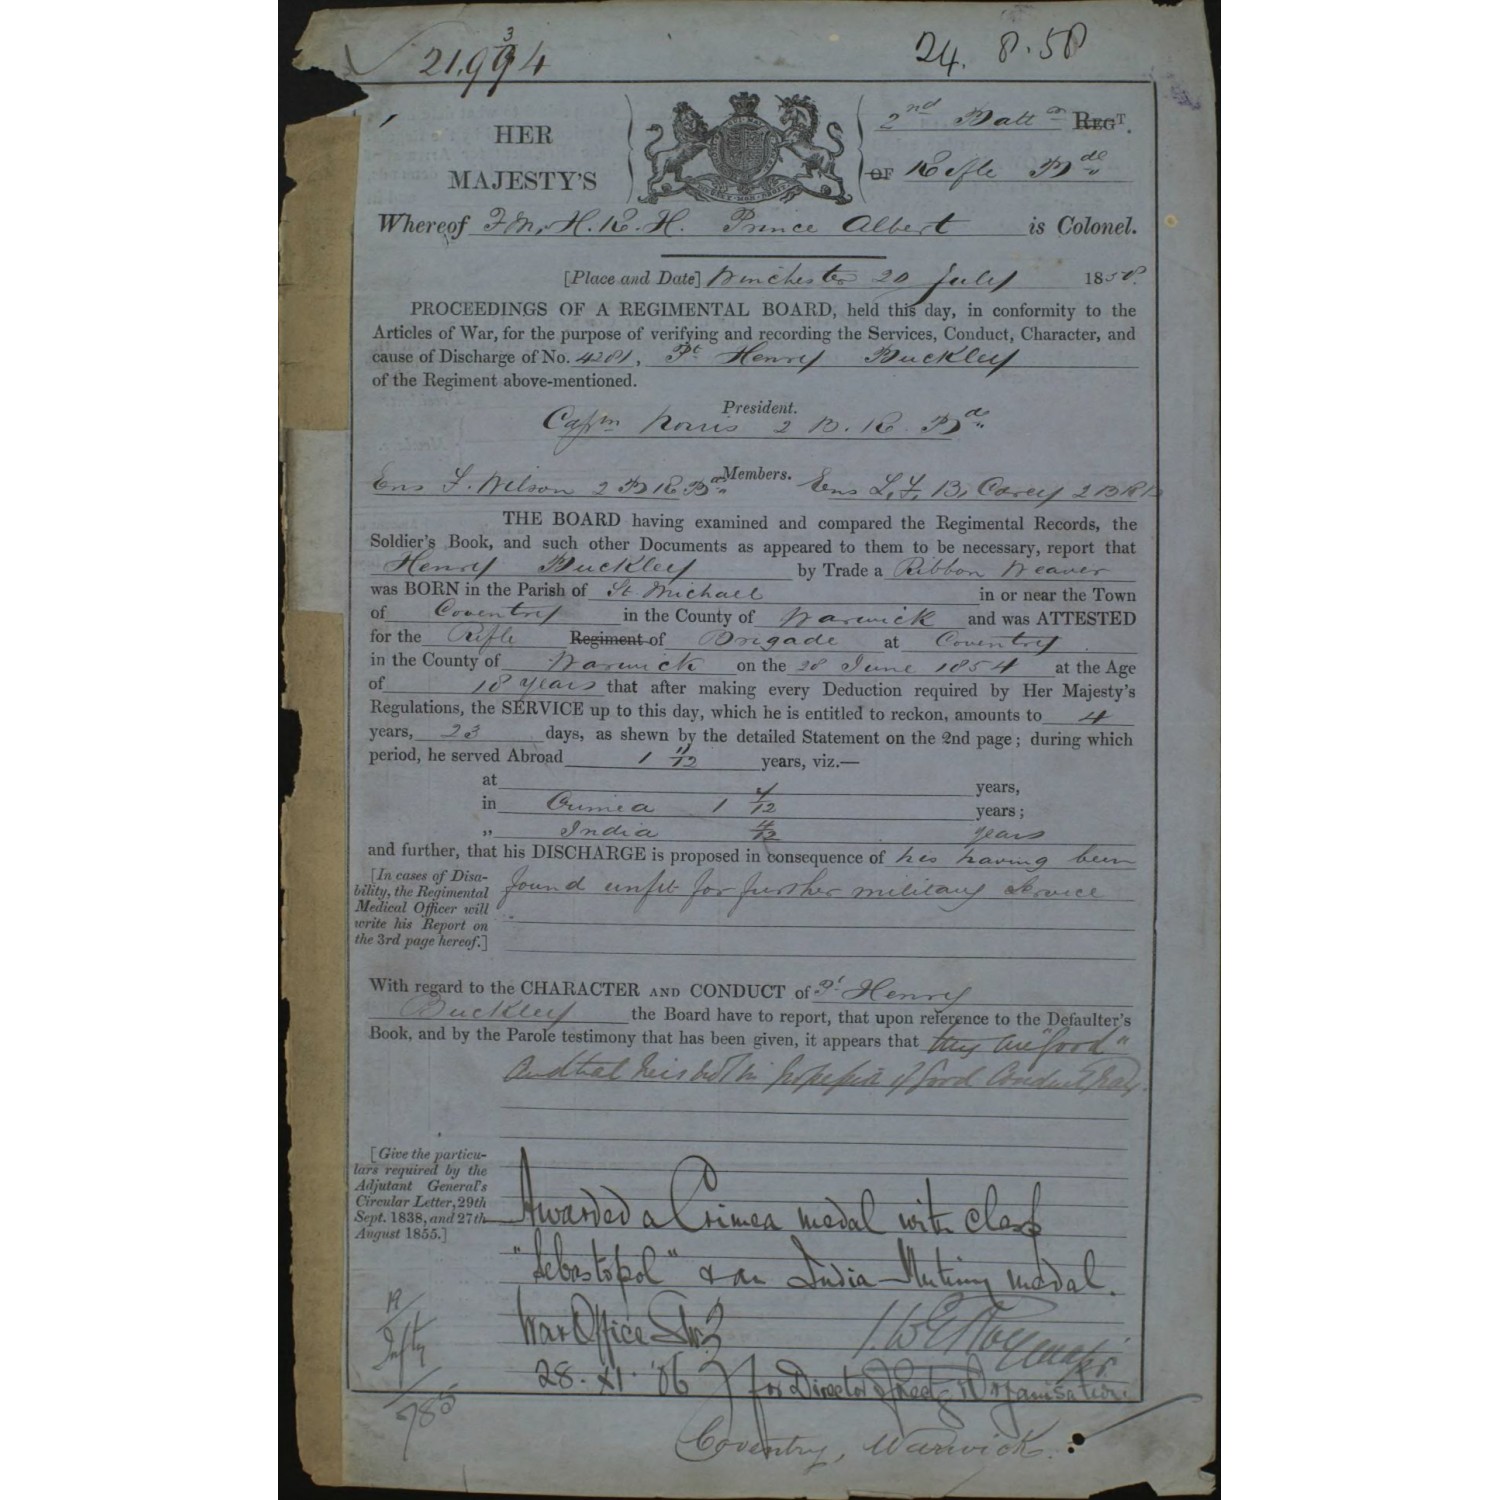 21,994
3
24. 8. 58
HER
MAJESTY'S
2nd Battn REGT.
OF Rifle Bde
Whereof F.M. H.R.H. Prince Albert is Colonel.
[Place and Date] Winchester 20 July 1858.
PROCEEDINGS OF A REGIMENTAL BOARD, held this day, in conformity to the
Articles of War, for the purpose of verifying and recording the Services, Conduct, Character, and
cause of Discharge of No. 4281, Pt Henry Buckley
of the Regiment above-mentioned.
President.
Captn Norris 2 B. R. Bde
Members.
Ens F. Wilson 2 B R Bde Ens L. F. B. Carey 2 B R B
THE BOARD having examined and compared the Regimental Records, the
Soldier's Book, and such other Documents as appeared to them to be necessary, report that
Henry Buckley by Trade a Ribbon Weaver
was BORN in the Parish of St. Michael in or near the Town
of Coventry in the County of Warwick and was ATTESTED
for the Rifle Regiment of Brigade at Coventry
in the County of Warwick on the 28 June 1854 at the Age
of 18 years that after making every Deduction required by Her Majesty's
Regulations, the SERVICE up to this day, which he is entitled to reckon, amounts to 4
years, 23 days, as shewn by the detailed Statement on the 2nd page; during which
period, he served Abroad 1 11/12 years, viz.—
at years,
in Crimea 1 7/12 years;
„ India 4/12 years
and further, that his DISCHARGE is proposed in consequence of his having been
[In cases of Disa-
bility, the Regimental
Medical Officer will
write his Report on
the 3rd page hereof.]
found unfit for further military service
With regard to the CHARACTER AND CONDUCT of Pt Henry
Buckley the Board have to report, that upon reference to the Defaulter's
Book, and by the Parole testimony that has been given, it appears that they are "Good"
and that he is not in possession of Good Conduct Badge.
[Give the particu-
lars required by the
Adjutant General's
Circular Letter, 29th
Sept. 1838, and 27th
August 1855.]
Awarded a Crimea medal with clasp
"Sebastopol" & an India Mutiny medal.
War Office
28. XI. '06 for Director of Organisation.
R/
Infty
/785
Coventry, Warwick.